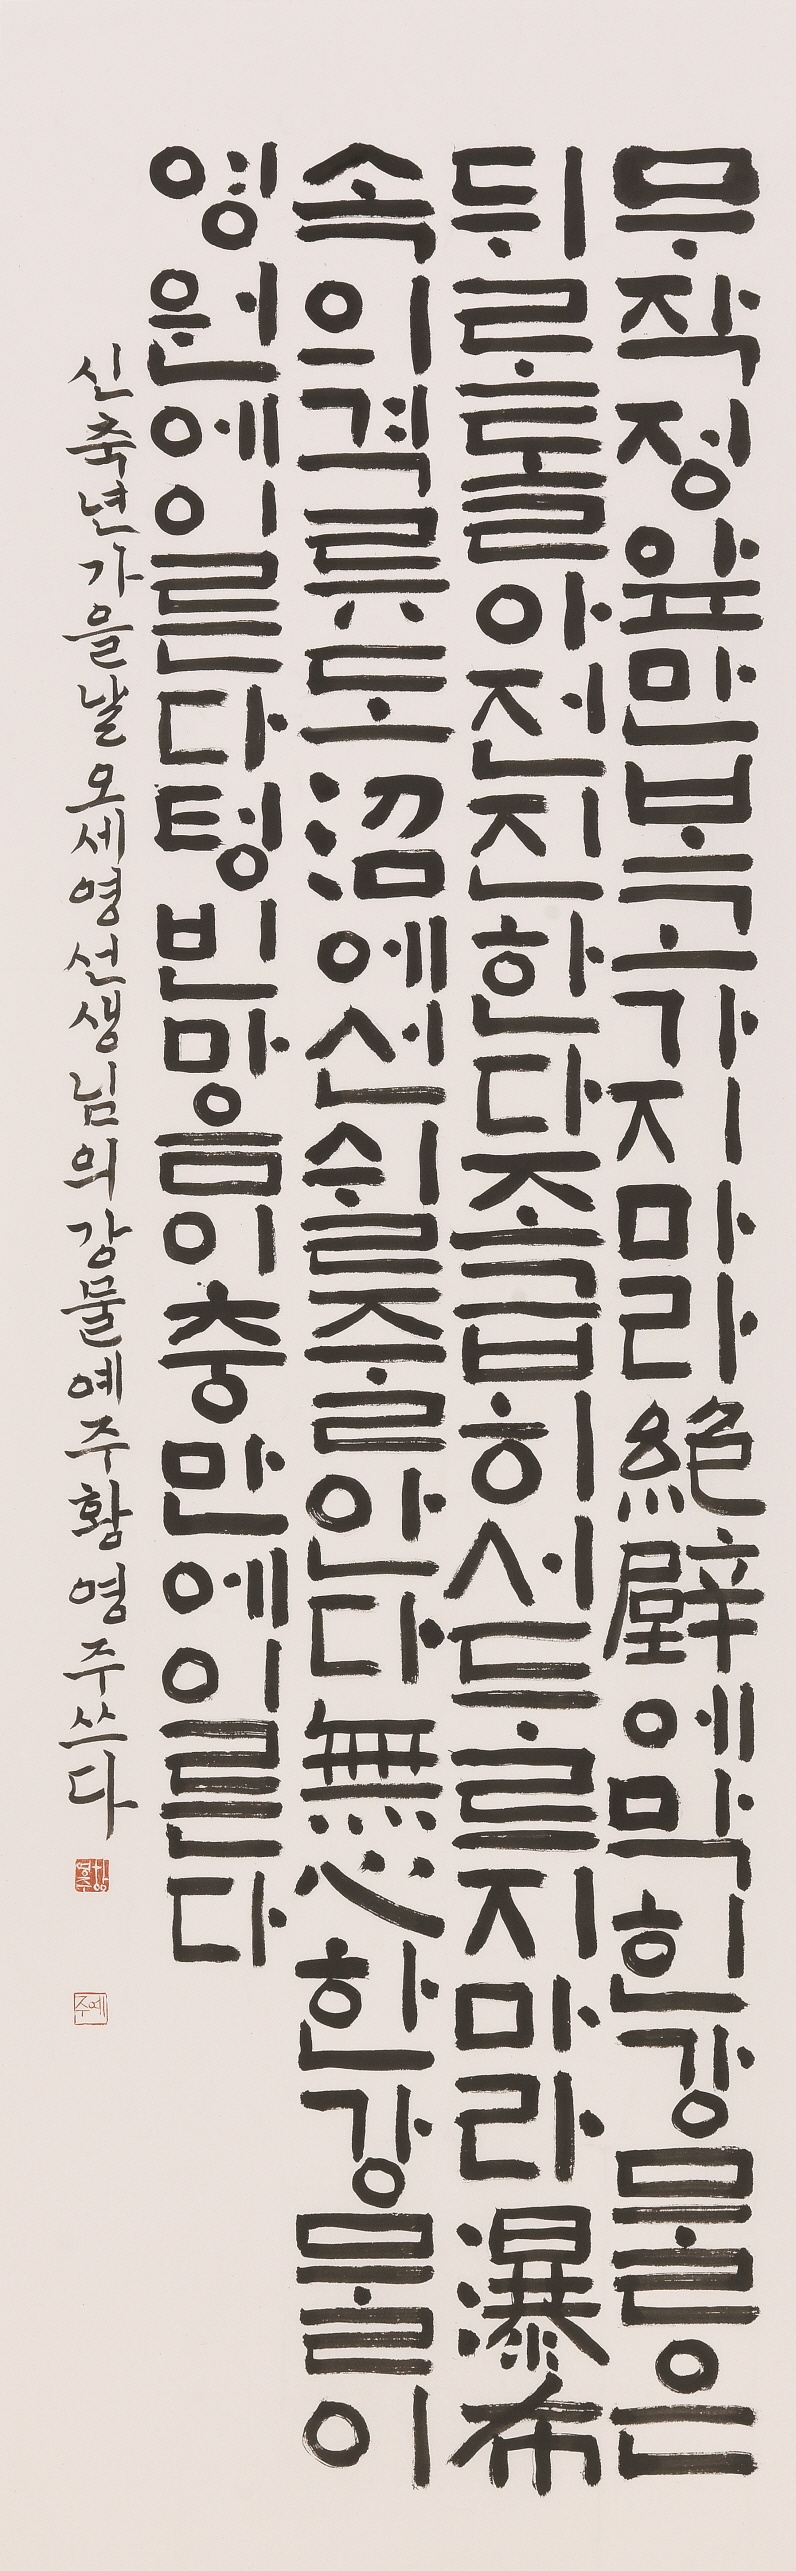 무작정앞만보고가지마라絕壁에막힌강물은
뒤로돌아전진한다조급히서두르지마라瀑布
속의격류도沼에선쉴줄을안다無心한강물이
영원에이른다텅빈마음이충만에이른다
신축년가을날오세영선생님의강물예주황영주쓰다
황영주
예주